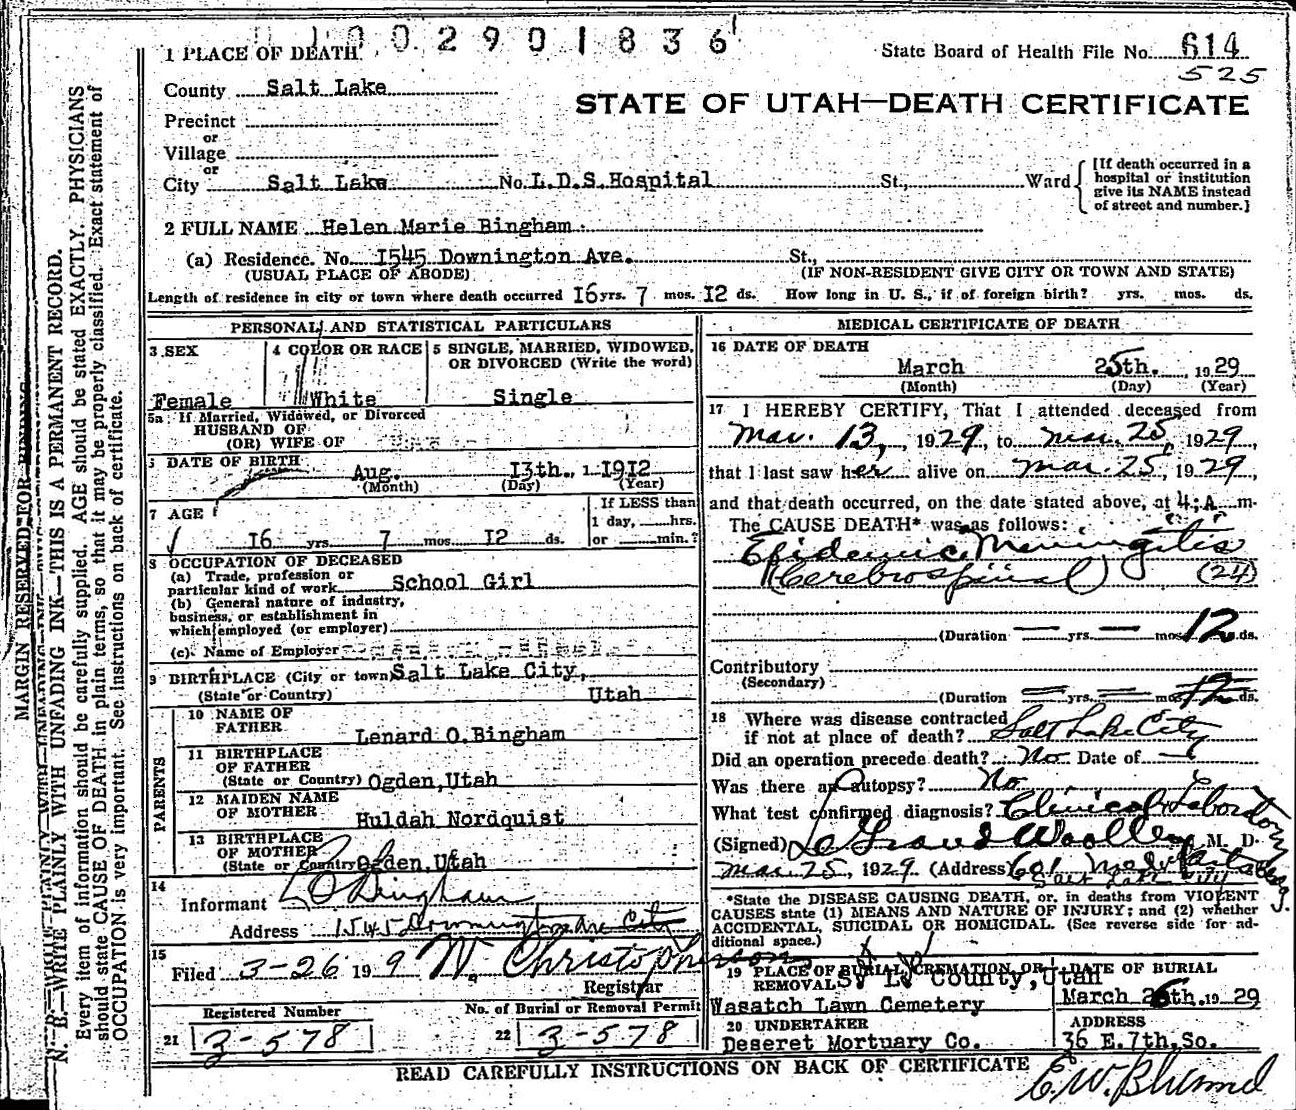 1002901836
1 PLACE OF DEATH
State Board of Health File No. 614
525
County Salt Lake
STATE OF UTAH—DEATH CERTIFICATE
Precinct
or
Village
or
City Salt Lake No. L.D.S. Hospital St., Ward
[If death occurred in a
hospital or institution
give its NAME instead
of street and number.]
2 FULL NAME Helen Marie Bingham
(a) Residence. No. 1545 Downington Ave. St.,
(USUAL PLACE OF ABODE) (IF NON-RESIDENT GIVE CITY OR TOWN AND STATE)
Length of residence in city or town where death occurred 16 yrs. 7 mos. 12 ds. How long in U. S., if of foreign birth? yrs. mos. ds.
PERSONAL AND STATISTICAL PARTICULARS
3 SEX
Female
4 COLOR OR RACE
White
5 SINGLE, MARRIED, WIDOWED,
OR DIVORCED (Write the word)
Single
5a If Married, Widowed, or Divorced
HUSBAND OF
(OR) WIFE OF
DATE OF BIRTH
Aug. 13th., 1912
(Month) (Day) (Year)
7 AGE
16 yrs. 7 mos. 12 ds.
If LESS than
1 day, hrs.
or min.?
8 OCCUPATION OF DECEASED
(a) Trade, profession or
particular kind of work School Girl
(b) General nature of industry,
business, or establishment in
which employed (or employer)
(c) Name of Employer
9 BIRTHPLACE (City or town) Salt Lake City,
(State or Country) Utah
PARENTS
10 NAME OF
FATHER Lenard O. Bingham
11 BIRTHPLACE
OF FATHER
(State or Country) Ogden, Utah
12 MAIDEN NAME
OF MOTHER Huldah Nordquist
13 BIRTHPLACE
OF MOTHER
(State or Country) Ogden, Utah
14
Informant L O Bingham
Address 1545 Downington Ave City
15
Filed 3-26 19 9 W. Christopherson
Registrar
Registered Number
21 3-578
No. of Burial or Removal Permit
22 3-578
MEDICAL CERTIFICATE OF DEATH
16 DATE OF DEATH
March 25th. 1929
(Month) (Day) (Year)
17 I HEREBY CERTIFY, That I attended deceased from
Mar. 13, 1929, to Mar. 25, 1929,
that I last saw her alive on Mar. 25, 1929,
and that death occurred, on the date stated above, at 4; A m.
The CAUSE DEATH* was as follows:
Epidemic Meningitis
(Cerebrospinal) (24)
(Duration — yrs. — mos 12 ds.
Contributory
(Secondary)
(Duration yrs. mos 12 ds.
18 Where was disease contracted
if not at place of death? Salt Lake City
Did an operation precede death? No Date of —
Was there an autopsy? No
What test confirmed diagnosis? Clinical & Laboratory
(Signed) Le Grand Woolley M. D.
Mar. 25, 1929 (Address) 601 Med Arts Bldg.
Salt Lake City
*State the DISEASE CAUSING DEATH, or, in deaths from VIOLENT
CAUSES state (1) MEANS AND NATURE OF INJURY; and (2) whether
ACCIDENTAL, SUICIDAL OR HOMICIDAL. (See reverse side for ad-
ditional space.)
19 PLACE OF BURIAL, CREMATION, OR
REMOVAL S. L. County, Utah
Wasatch Lawn Cemetery
DATE OF BURIAL
March 26th. 1929
20 UNDERTAKER
Deseret Mortuary Co.
ADDRESS
36 E. 7th, So.
READ CAREFULLY INSTRUCTIONS ON BACK OF CERTIFICATE
MARGIN RESERVED FOR BINDING
N. B.—WRITE PLAINLY WITH UNFADING INK—THIS IS A PERMANENT RECORD.
Every item of information should be carefully supplied. AGE should be stated EXACTLY. PHYSICIANS
should state CAUSE OF DEATH in plain terms, so that it may be properly classified. Exact statement of
OCCUPATION is very important. See instructions on back of certificate.